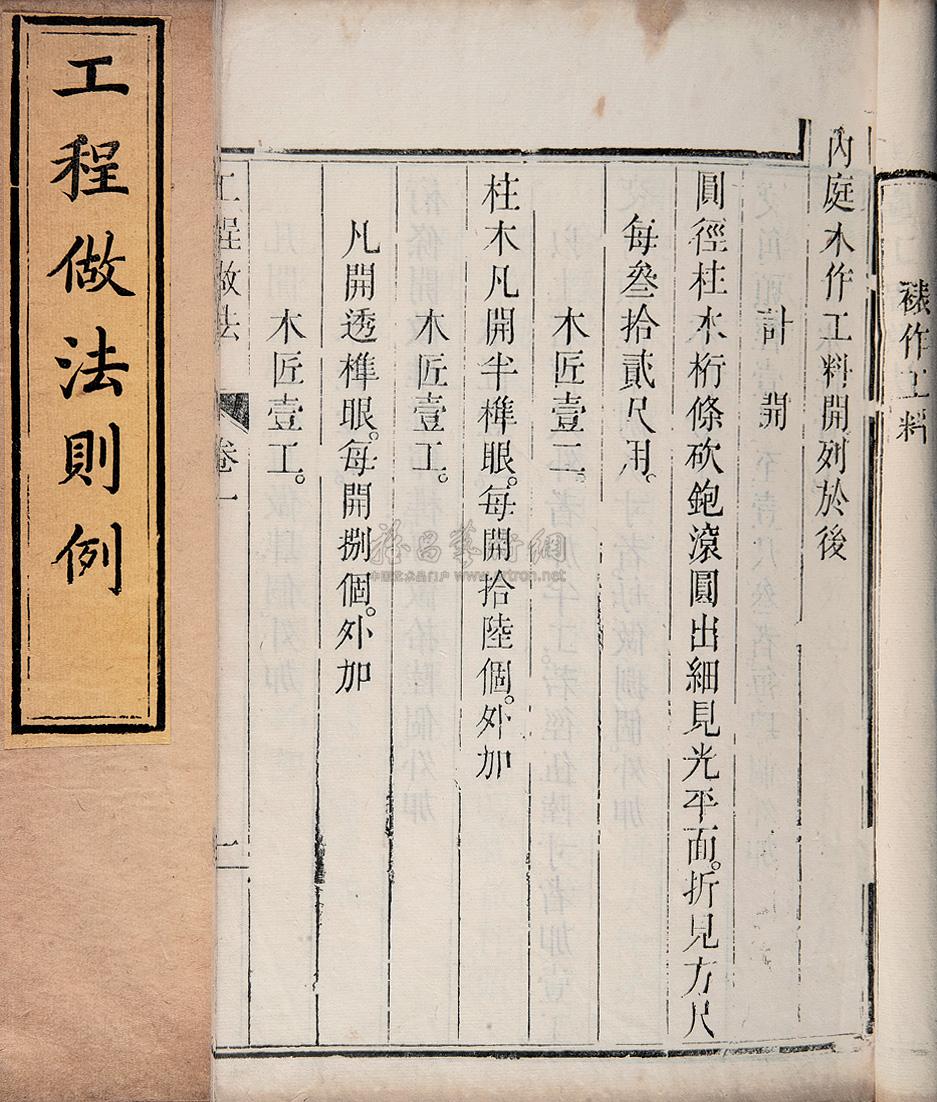 裱作工料
內庭木作工料開列於後
計開
圓徑柱木桁條砍鉋滾圓出細見光平面。折見方尺
每叄拾貳尺用。
木匠壹工。
柱木凡開半榫眼。每開拾陸個。外加
木匠壹工。
凡開透榫眼。每開捌個。外加
木匠壹工。
工程做法 卷一 一
工程做法則例
www.artron.net